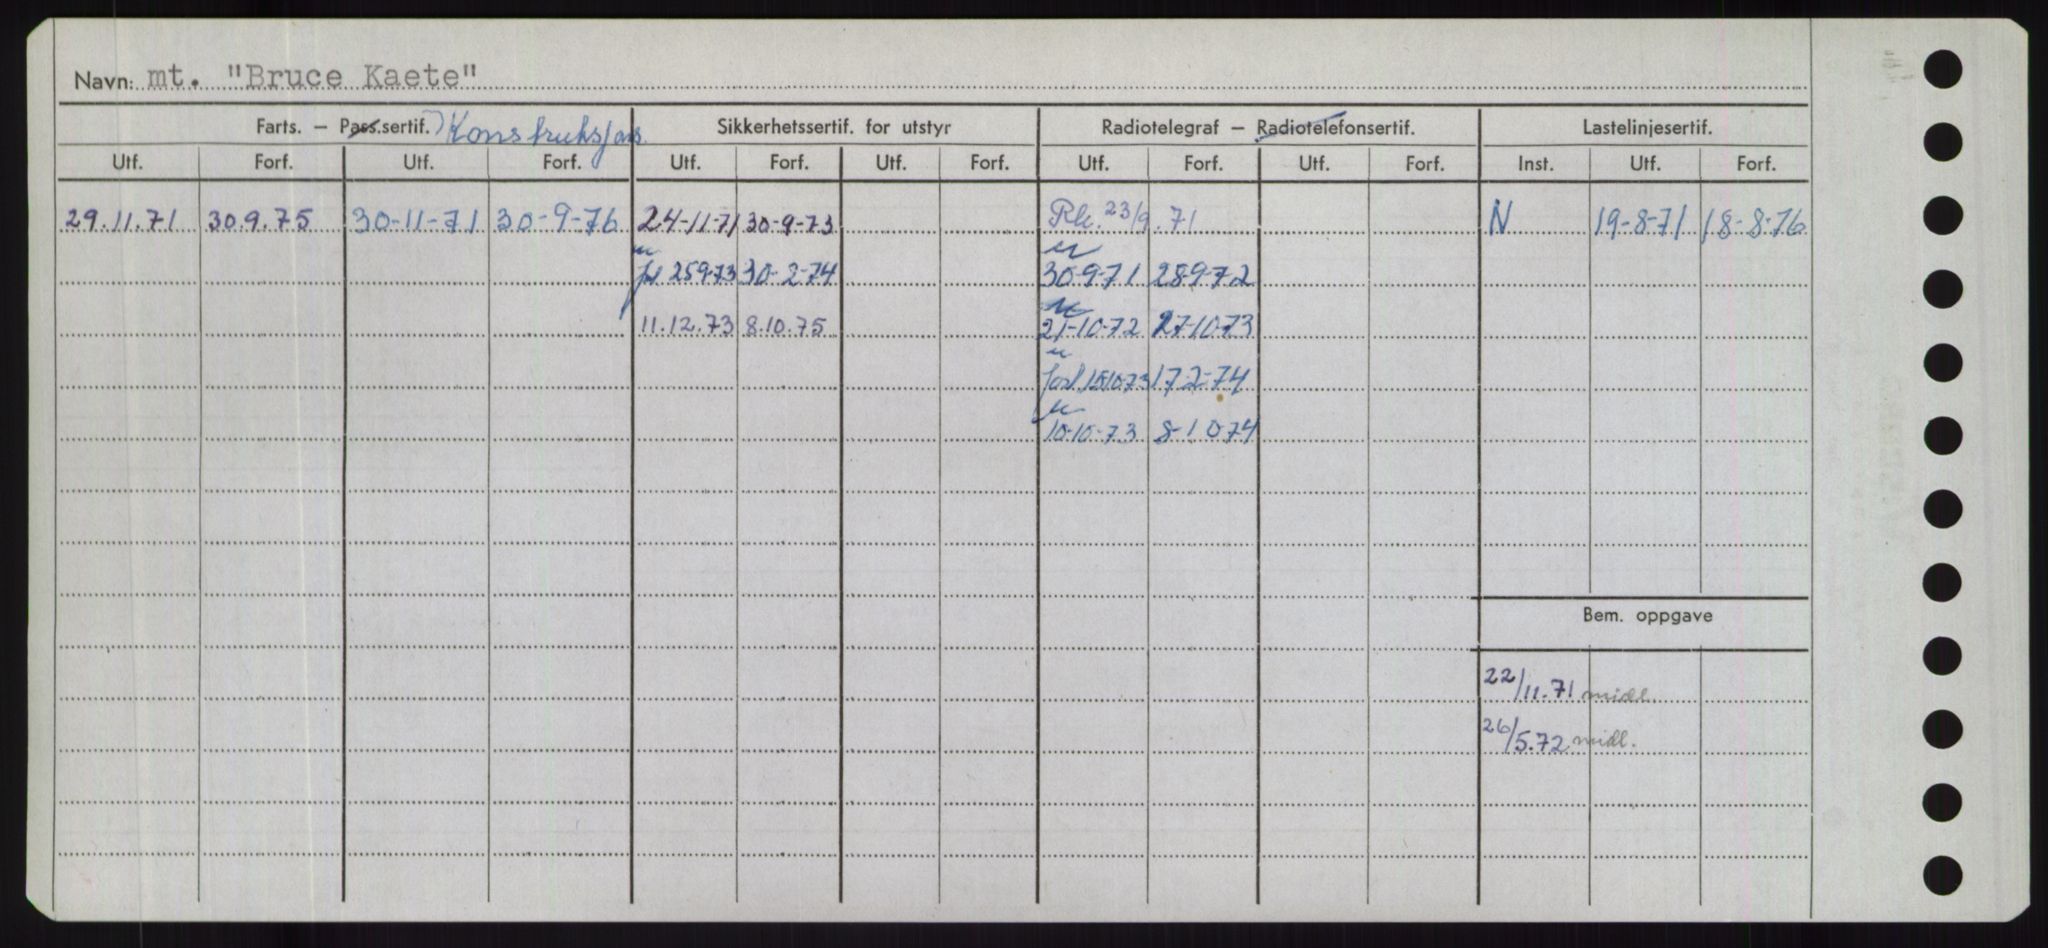 Navn: mt. "Bruce Kaete"
Farts. – Pass.sertif. Konstruksjons. Sikkerhetssertif. for utstyr Radiotelegraf – Radiotelefonsertif. Lastelinjesertif.
Utf. Forf. Utf. Forf. Utf. Forf. Utf. Forf. Utf. Forf. Utf. Forf. Inst. Utf. Forf.
29.11.71 30.9.75 30-11-71 30-9-76 24-11-71 30-9-73 23/9.71 N 19-8-71 18-8-76
25-9-73 30-2-74 30-9-71 28-9-72
11.12.73 8.10.75 21-10-72 27-10-73
forl. 15-10-73 17-2-74
10-10-73 8-10-74
Bem. oppgave
22/11.71 midl.
26/5.72 midl.